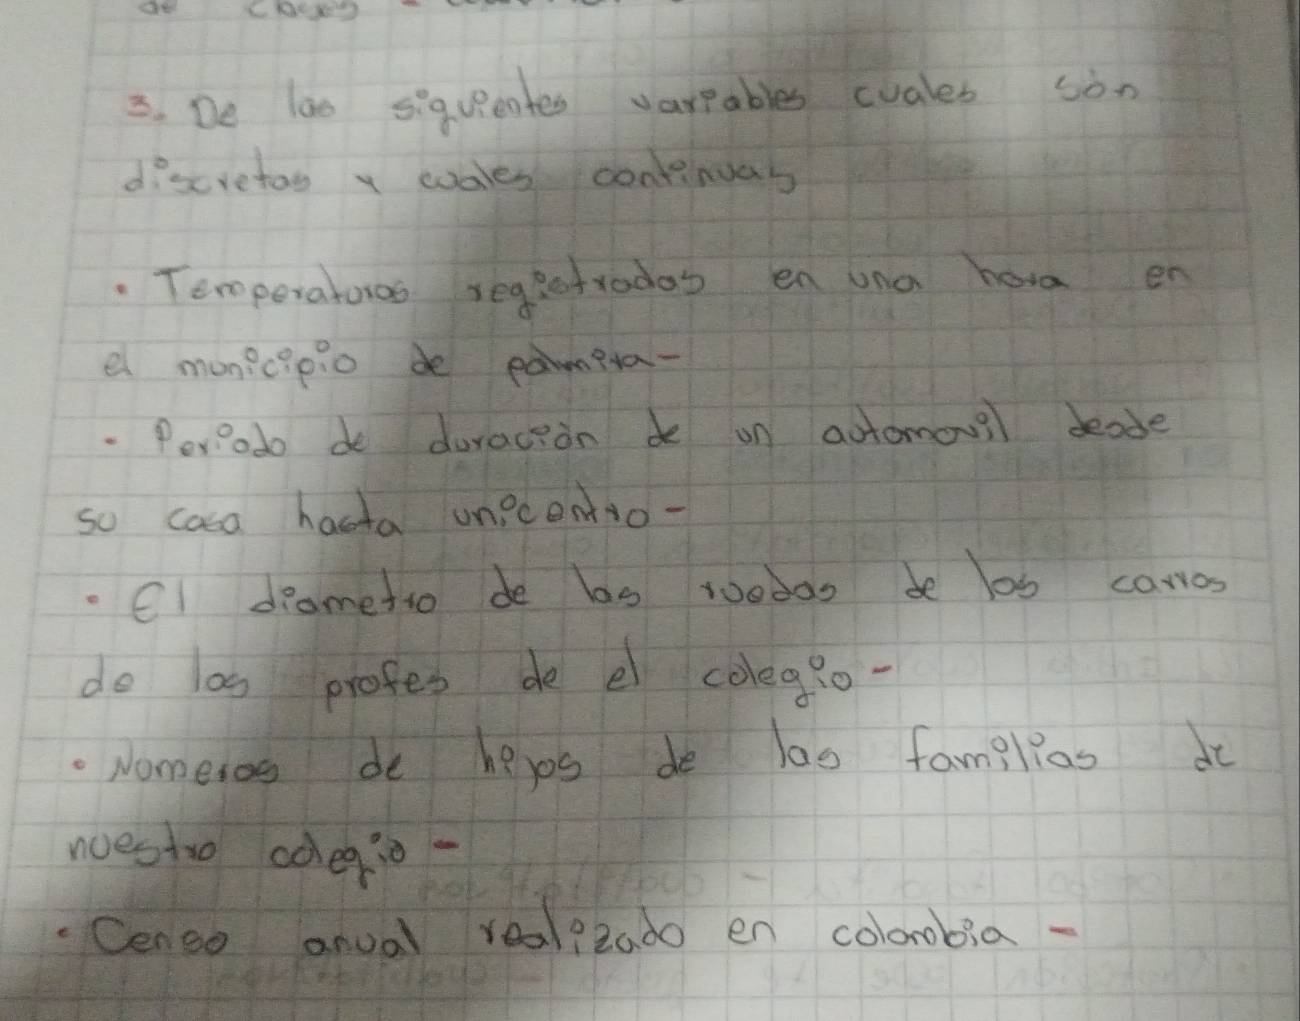 3. De las siguientes variables cuales sòn
discretas y cuales continuas
• Temperaturas registrados en una hora en
el municipio de palmira-
• Periodo de duraciòn de un automovil desde
su casa hasta unicentro-
• El diametro de las ruedas de los carros
de los profes de el colegio-
• Numeros de hijos de las familias de
nuestro colegio-
• Censo anual realizado en colombia-